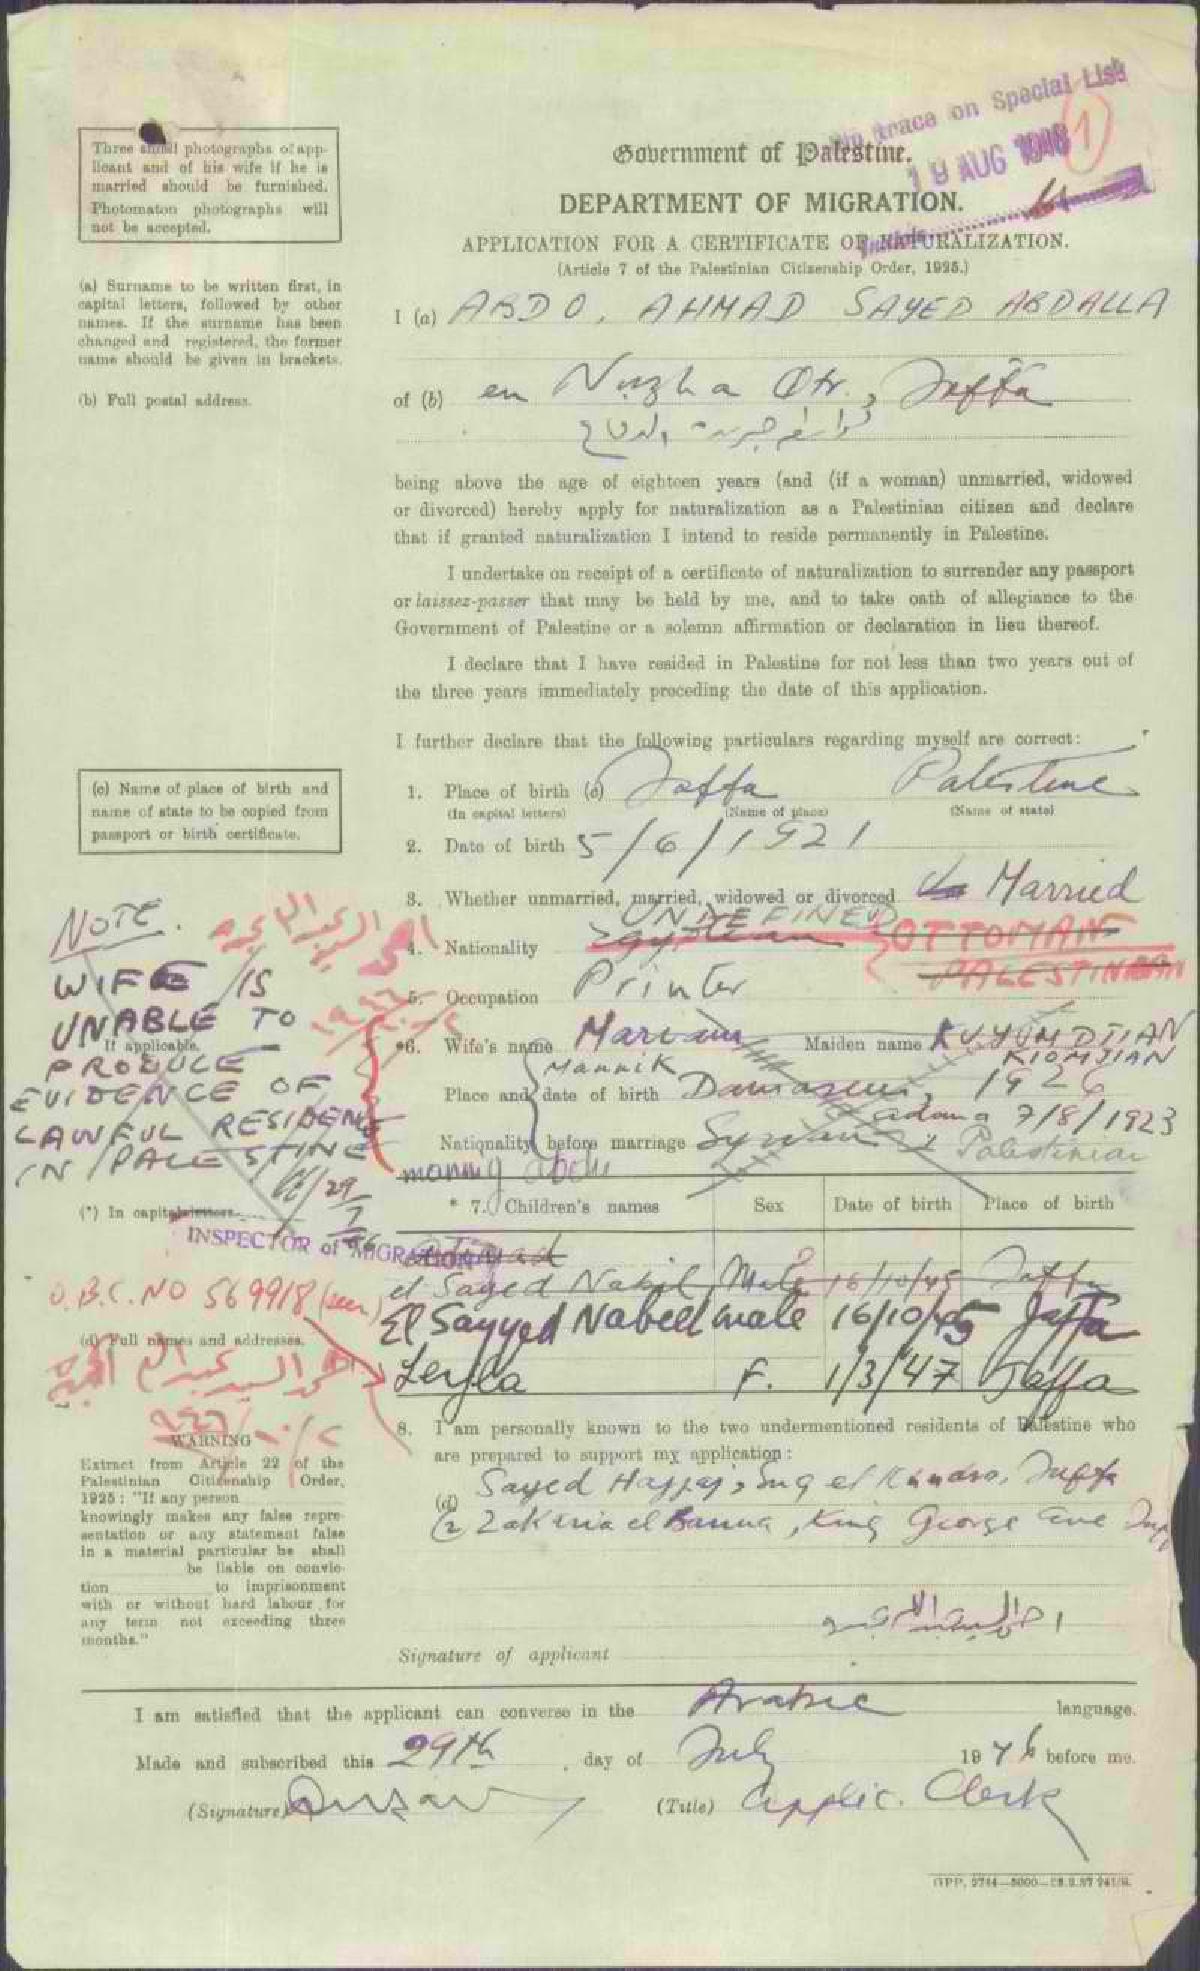 No trace on Special List
19 AUG 1946
(1)
Initials
Three small photographs of app-
licant and of his wife if he is
married should be furnished.
Photomaton photographs will
not be accepted.
Government of Palestine.
DEPARTMENT OF MIGRATION.
APPLICATION FOR A CERTIFICATE OF NATURALIZATION.
(Article 7 of the Palestinian Citizenship Order, 1925.)
(a) Surname to be written first, in
capital letters, followed by other
names. If the surname has been
changed and registered, the former
name should be given in brackets.
I (a) ABDO, AHMAD SAYED ABDALLA
(b) Full postal address.
of (b) en Nuzha Qtr., Jaffa
being above the age of eighteen years (and (if a woman) unmarried, widowed
or divorced) hereby apply for naturalization as a Palestinian citizen and declare
that if granted naturalization I intend to reside permanently in Palestine.
I undertake on receipt of a certificate of naturalization to surrender any passport
or laissez-passer that may be held by me, and to take oath of allegiance to the
Government of Palestine or a solemn affirmation or declaration in lieu thereof.
I declare that I have resided in Palestine for not less than two years out of
the three years immediately preceding the date of this application.
I further declare that the following particulars regarding myself are correct:
(c) Name of place of birth and
name of state to be copied from
passport or birth certificate.
1. Place of birth (c) Jaffa Palestine
(In capital letters) (Name of place) (Name of state)
2. Date of birth 5/6/1921
3. Whether unmarried, married, widowed or divorced Married
UNDEFINED
4. Nationality Egyptian OTTOMAN
PALESTINIAN
5. Occupation Printer
NOTE.
WIFE IS
UNABLE TO
PRODUCE
EVIDENCE OF
LAWFUL RESIDENCE
IN PALESTINE
29/7/46
INSPECTOR of MIGRATION
If applicable.
*6. Wife's name Mariam Maiden name KUYUMDTIAN
Mannik KIOMJIAN
Place and date of birth Damascus, 1926
adana 7/8/1923
Nationality before marriage Syrian Palestinian
manny abdu
(*) In capital letters.
* 7. Children's names Sex Date of birth Place of birth
el Sayed Nabil Male 16/10/45 Jaffa
El Sayyed Nabeel male 16/10/45 Jaffa
Leyla F. 1/3/47 Jaffa
O.B.C. NO 569918 (seen)
(d) Full names and addresses.
8. I am personally known to the two undermentioned residents of Palestine who
are prepared to support my application:
(d) Sayed Hajjaj, Suq el Kundra, Jaffa
(2 Zakaria el Banna, King George ave
WARNING
Extract from Article 22 of the
Palestinian Citizenship Order,
1925: "If any person
knowingly makes any false repre-
sentation or any statement false
in a material particular he shall
be liable on convic-
tion to imprisonment
with or without hard labour for
any term not exceeding three
months."
Signature of applicant
I am satisfied that the applicant can converse in the Arabic language.
Made and subscribed this 29th day of July 1946 before me.
(Signature) (Title) Applic. Clerk
GPP. 2744—5000—23.2.37 241/R.